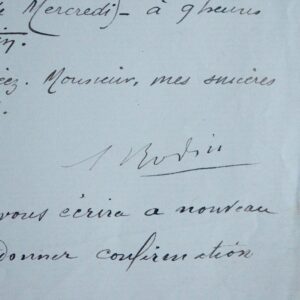 Mercredi - à 9 heures
Monsieur, mes sincères
A Rodin
vous écrira a nouveau
donner confirmation